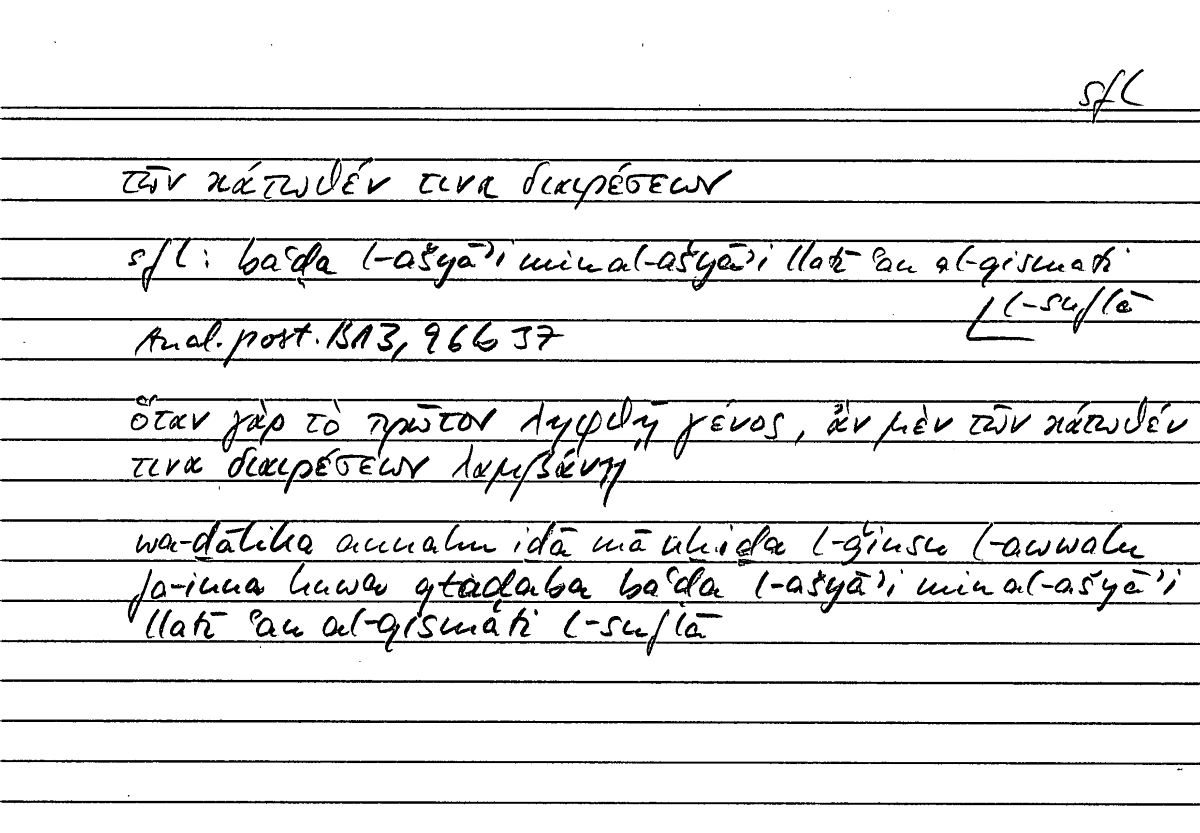 sfl
τῶν κάτωθέν τινα διαιρέσεων
sfl: baʿḍa l-ašyāʾi min al-ašyāʾi llatī ʿan al-qismati
l-suflā
Anal. post. B13, 96b37
ὅταν γὰρ τὸ πρῶτον ληφθῇ γένος, ἂν μὲν τῶν κάτωθέν
τινα διαιρέσεων λαμβάνῃ
wa-ḏālika annahu iḏā mā uḫiḏa l-ǧinsu l-awwalu
fa-inna huwa qtaḍaba baʿḍa l-ašyāʾi min al-ašyāʾi
llatī ʿan al-qismati l-suflā